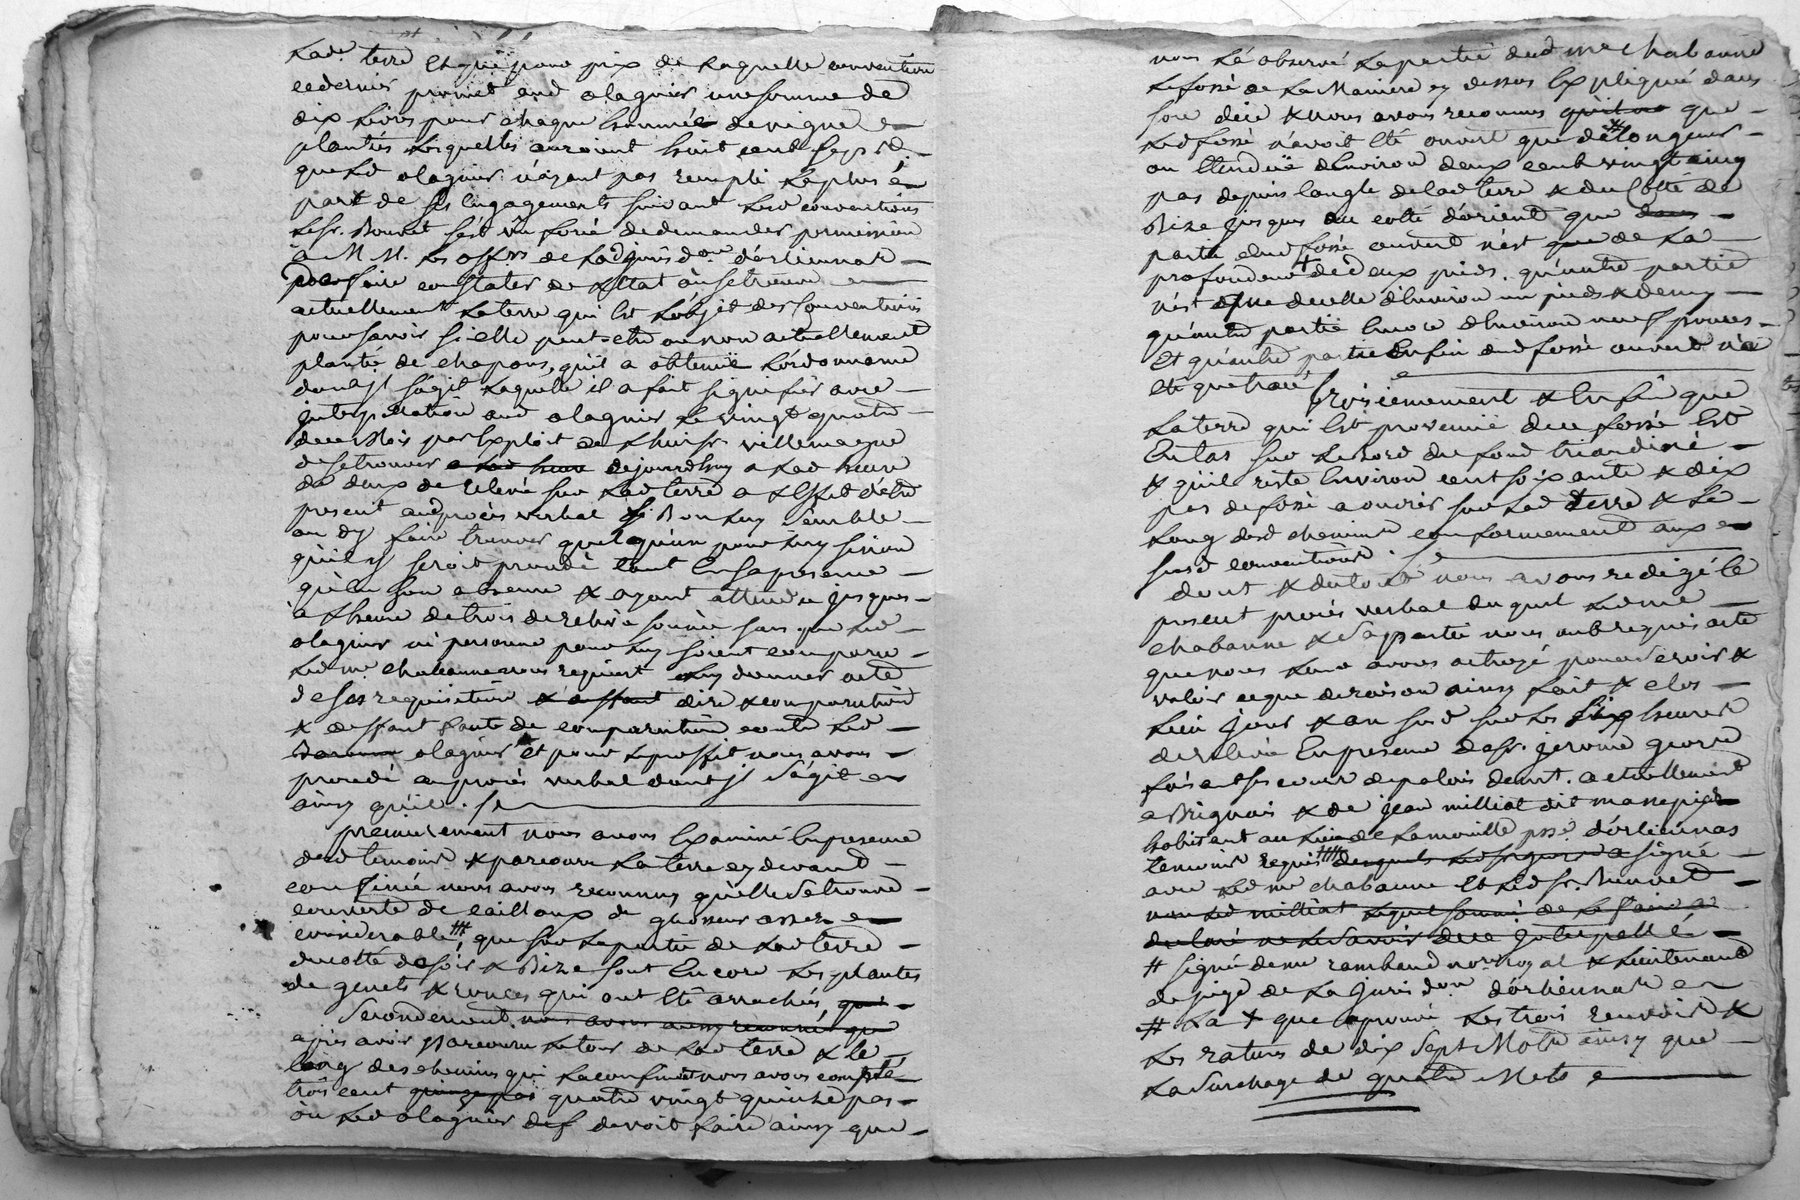 lad.e terre Et que pour prix de laquelle convention
ce dernier promet aud olagnier une somme de
dix livres pour chaque hommée de vigne
plantées lesquelles auroient huit cent seps &
que led olagnier n'ayant pas rempli le plus
part de ses Engagements suivant lesd conventions
le Sr. Bouvet s'est vû forcé de demander permission
à M M. les offrs de lad jurisd.on d'orliennas
pour faire constater de l'Etat où se trouve
actuellement la terre qui Est l'objet des conventions
pour savoir si elle peut etre ou non actuellement
plantée de chapons, qu'il a obtenuë l'ordonnance
dont jl s'agit laquelle il a fait signifier avec
jnterpellation aud olagnier le vingt quatre
de ce Mois par Exploit de l'huissr. villemagne
de se trouver a lad heure dejourdhuy a lad heure
de deux de relevée sur lad terre a l'Effet d'être
present aud procès verbal si Bon luy semble
ou d'y faire trouver quelqu'un pour luy sinon
qu'il y seroit procedé tant En sa presence
qu'en son absence & ayant attendu jusques
à l'heure de trois de relevée sonnée sans que led
olagnier ni personne pour luy soient comparu
led me. chabanne nous requiert luy donner acte
de ses requisition & deffaut dire & comparution
& deffaut faute de comparution contre led
olagnier Et pour le proffit nous avons
procedé au procès verbal dont jl s'agit
ainsy qu'il .
premierement nous avons Examiné En presence
desd temoins & parcouru la terre cy devant
confinée nous avons reconnu qu'elle se trouve
couverte de cailloux de grosseur assez
considerable ; que sur la partie de lad terre
du coté de soir & Bize sont Encore les plantes
de genets & ronces qui ont Eté arrachés que
Secondement nous avons aussy reconnu que
après avoir parcouru le tour de lad terre & le
long des chemins qui la confinent nous avons compté
trois cent quinze pas quatre vingt quinze pas
où led olagnier def devoit faire ainsy que
nous l'a observé la partie dud me chabanne
le fossé de la Maniere cy dessus Expliquée dans
son dire & nous avons reconnu que
led fossé n'avoit Eté ouvert que de # longeur
ou Etenduë d'Environ deux cent vingt cinq
pas depuis l'angle de lad terre & du Cotté de
Bize jusques au cotté d'orient que dans
partie dud fossé ouvert n'est que de la
profondeur + de deux pieds. qu'autre partie
n'est que de celle d'Environ un pied & demy
qu'autre partie Encore d'Environ neuf pouces
Et qu'autre partie Enfin dud fossé ouvert n'a
Eté que tracé Troisiemement & Enfin que
la terre qui Est provenuë de ce fossé Est
En tas sur le bord du fond
& qu'il reste Environ cent soixante & dix
pas de fossé a ouvrir sur lad terre & le
long desd chemins conformement aux
susd conventions.
dont & du tout nous avons redigé le
present procès verbal duquel led me
chabanne & sa partie nous ont requis acte
que nous leur avons octroyé pour servir &
valoir ce que de raison ainsy fait & clos
lieu jour & an susd sur les six heures
de relevée En presence de Sr. jerome
actuellement
a Brignais & de jean milliat dit
habitant au lieu de la mouille psse. d'orliennas
temoins requis desquels signé
avec led me chabanne Et led Sr. Bouvet
non led milliat lequel sommé de le faire a
declaré ne le savoir de ce jnterpellé
# signé de me rambaud nore royal & lieutenant
de juge de la jurisdon d'orliennas
# la + que aprouvé les trois renvois &
les ratures de dix sept Mots ainsy que
la surchage de quatre Mots